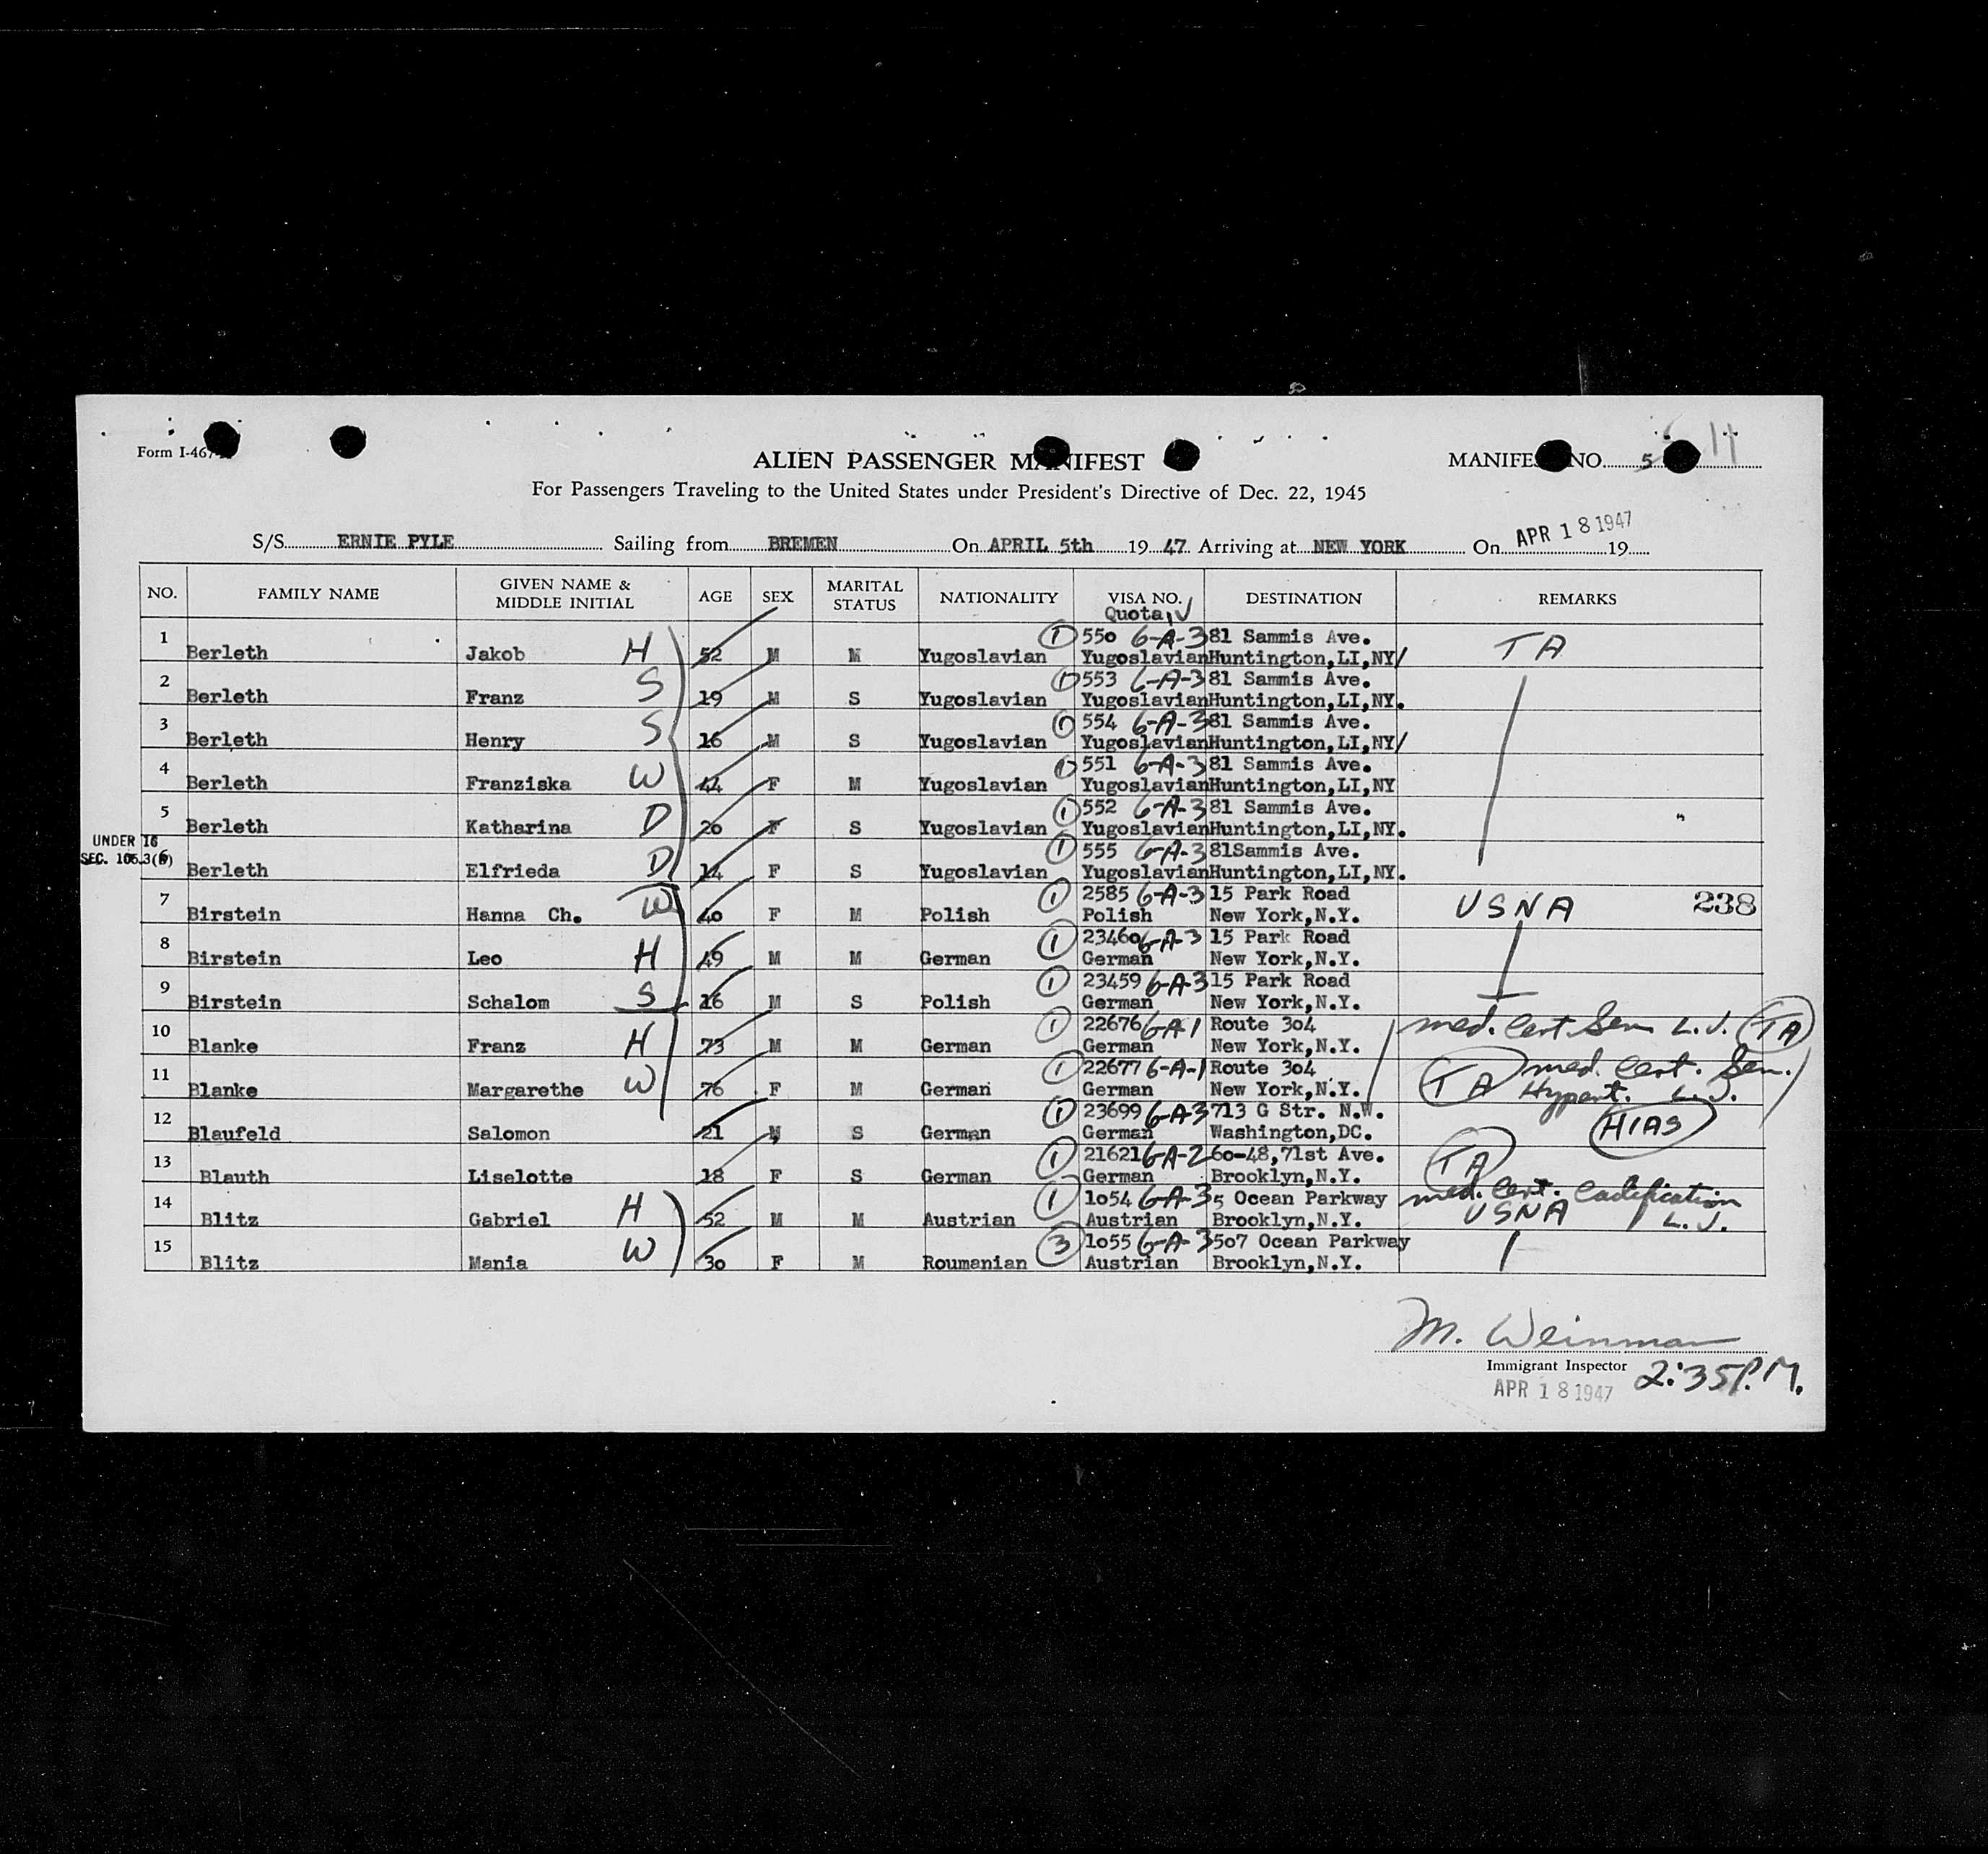 Form I-467
ALIEN PASSENGER MANIFEST
MANIFEST NO. 5 11
For Passengers Traveling to the United States under President's Directive of Dec. 22, 1945
S/S ERNIE PYLE Sailing from BREMEN On APRIL 5th 19 47 Arriving at NEW YORK On APR 18 1947 19
NO. FAMILY NAME GIVEN NAME & MIDDLE INITIAL AGE SEX MARITAL STATUS NATIONALITY VISA NO. Quota, V DESTINATION REMARKS
1 Berleth Jakob H 52 M M Yugoslavian 1 550 6-A-3 Yugoslavian 81 Sammis Ave. Huntington,LI,NY/ TA
2 Berleth Franz S 19 M S Yugoslavian 1 553 6-A-3 Yugoslavian 81 Sammis Ave. Huntington,LI,NY.
3 Berleth Henry S 16 M S Yugoslavian 1 554 6-A-3 Yugoslavian 81 Sammis Ave. Huntington,LI,NY/
4 Berleth Franziska W 44 F M Yugoslavian 1 551 6-A-3 Yugoslavian 81 Sammis Ave. Huntington,LI,NY
5 Berleth Katharina D 20 F S Yugoslavian 1 552 6-A-3 Yugoslavian 81 Sammis Ave. Huntington,LI,NY. "
UNDER 16
SEC. 105.3(b)
6 Berleth Elfrieda D 14 F S Yugoslavian 1 555 6-A-3 Yugoslavian 81Sammis Ave. Huntington,LI,NY.
7 Birstein Hanna Ch. W 40 F M Polish 1 2585 6-A-3 Polish 15 Park Road New York,N.Y. USNA 238
8 Birstein Leo H 49 M M German 1 23460 6-A-3 German 15 Park Road New York,N.Y.
9 Birstein Schalom S 16 M S Polish 1 23459 6-A-3 German 15 Park Road New York,N.Y.
10 Blanke Franz H 73 M M German 1 22676 6-A-1 German Route 304 New York,N.Y. med. Cert. Sen L.J. TA
11 Blanke Margarethe W 76 F M German 1 22677 6-A-1 German Route 304 New York,N.Y. TA med. Cert. Sen. Hypert. L.J.
12 Blaufeld Salomon 21 M S German 1 23699 6-A-3 German 713 G Str. N.W. Washington,DC. HIAS
13 Blauth Liselotte 18 F S German 1 21621 6-A-2 German 60-48,71st Ave. Brooklyn,N.Y. TA
14 Blitz Gabriel H 52 M M Austrian 1 1054 6-A-3 Austrian 5 Ocean Parkway Brooklyn,N.Y. med. Cert. USNA L.J.
15 Blitz Mania W 30 F M Roumanian 3 1055 6-A-3 Austrian 507 Ocean Parkway Brooklyn,N.Y.
M. Weinman
Immigrant Inspector
APR 18 1947 2:35 P.M.